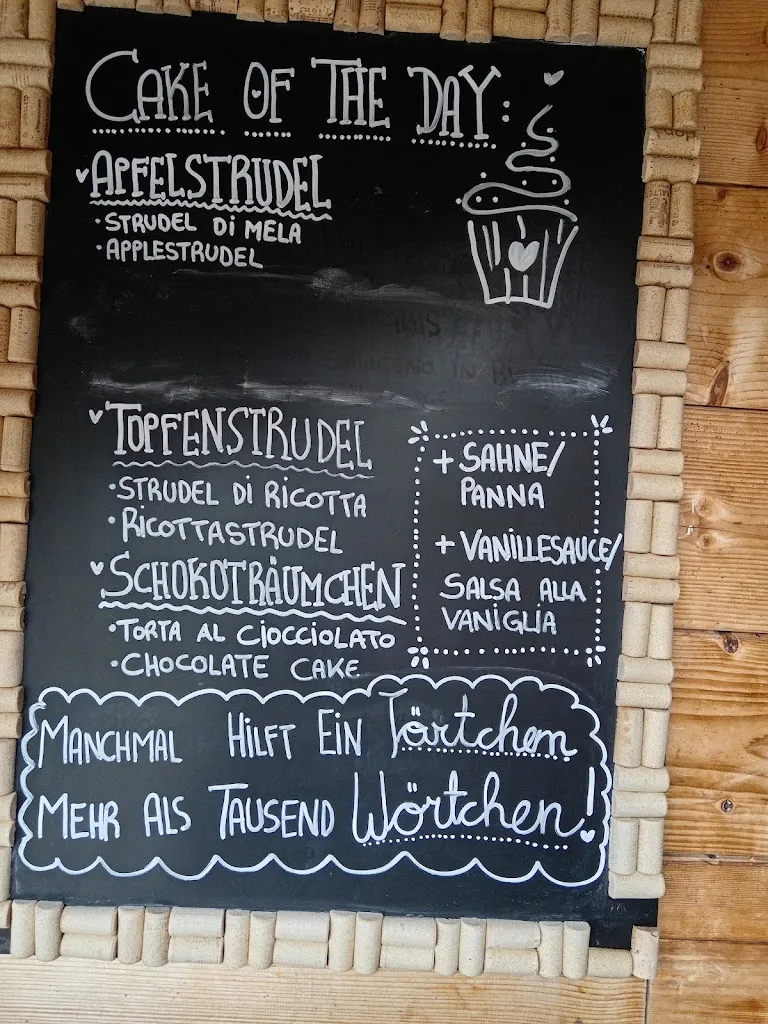 CAKE OF THE DAY:
APFELSTRUDEL
• STRUDEL DI MELA
• APPLESTRUDEL
TOPFENSTRUDEL
• STRUDEL DI RICOTTA
• RICOTTASTRUDEL
SCHOKOTRÄUMCHEN
• TORTA AL CIOCCIOLATO
• CHOCOLATE CAKE
+ SAHNE/
PANNA
+ VANILLESAUCE/
SALSA ALLA
VANIGLIA
MANCHMAL HILFT EIN Törtchen
MEHR ALS TAUSEND Wörtchen!